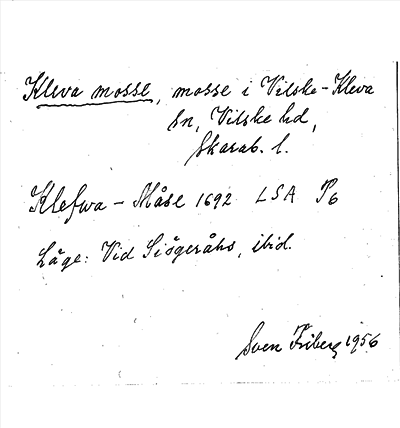 Kleva mosse, mosse i Vilske-Kleva
sn, Vilske hd,
Skarab. l.
Klefwa - Måse 1692 LSA P6
Läge: Vid Siögeråhs, ibid.
Sven Friberg 1956